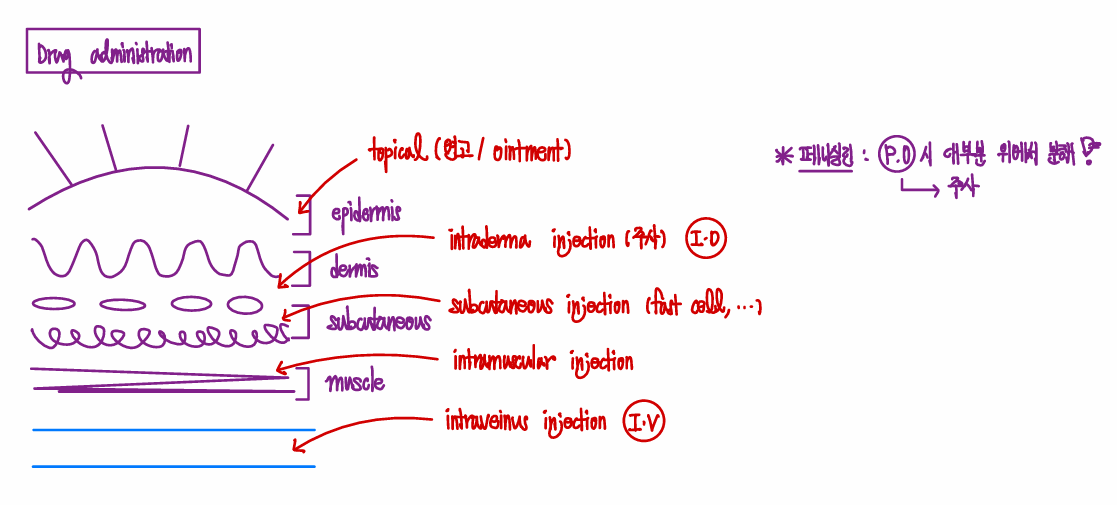 Drug administration
topical (연고 / ointment)
* 페니실린 : P.O 시 대부분 위에서 분해!
→ 주사
epidermis
intraderma injection (주사) I.D
dermis
subcutaneous injection (fast cell, ...)
subcutaneous
intramuscular injection
muscle
intraveinus injection I.V